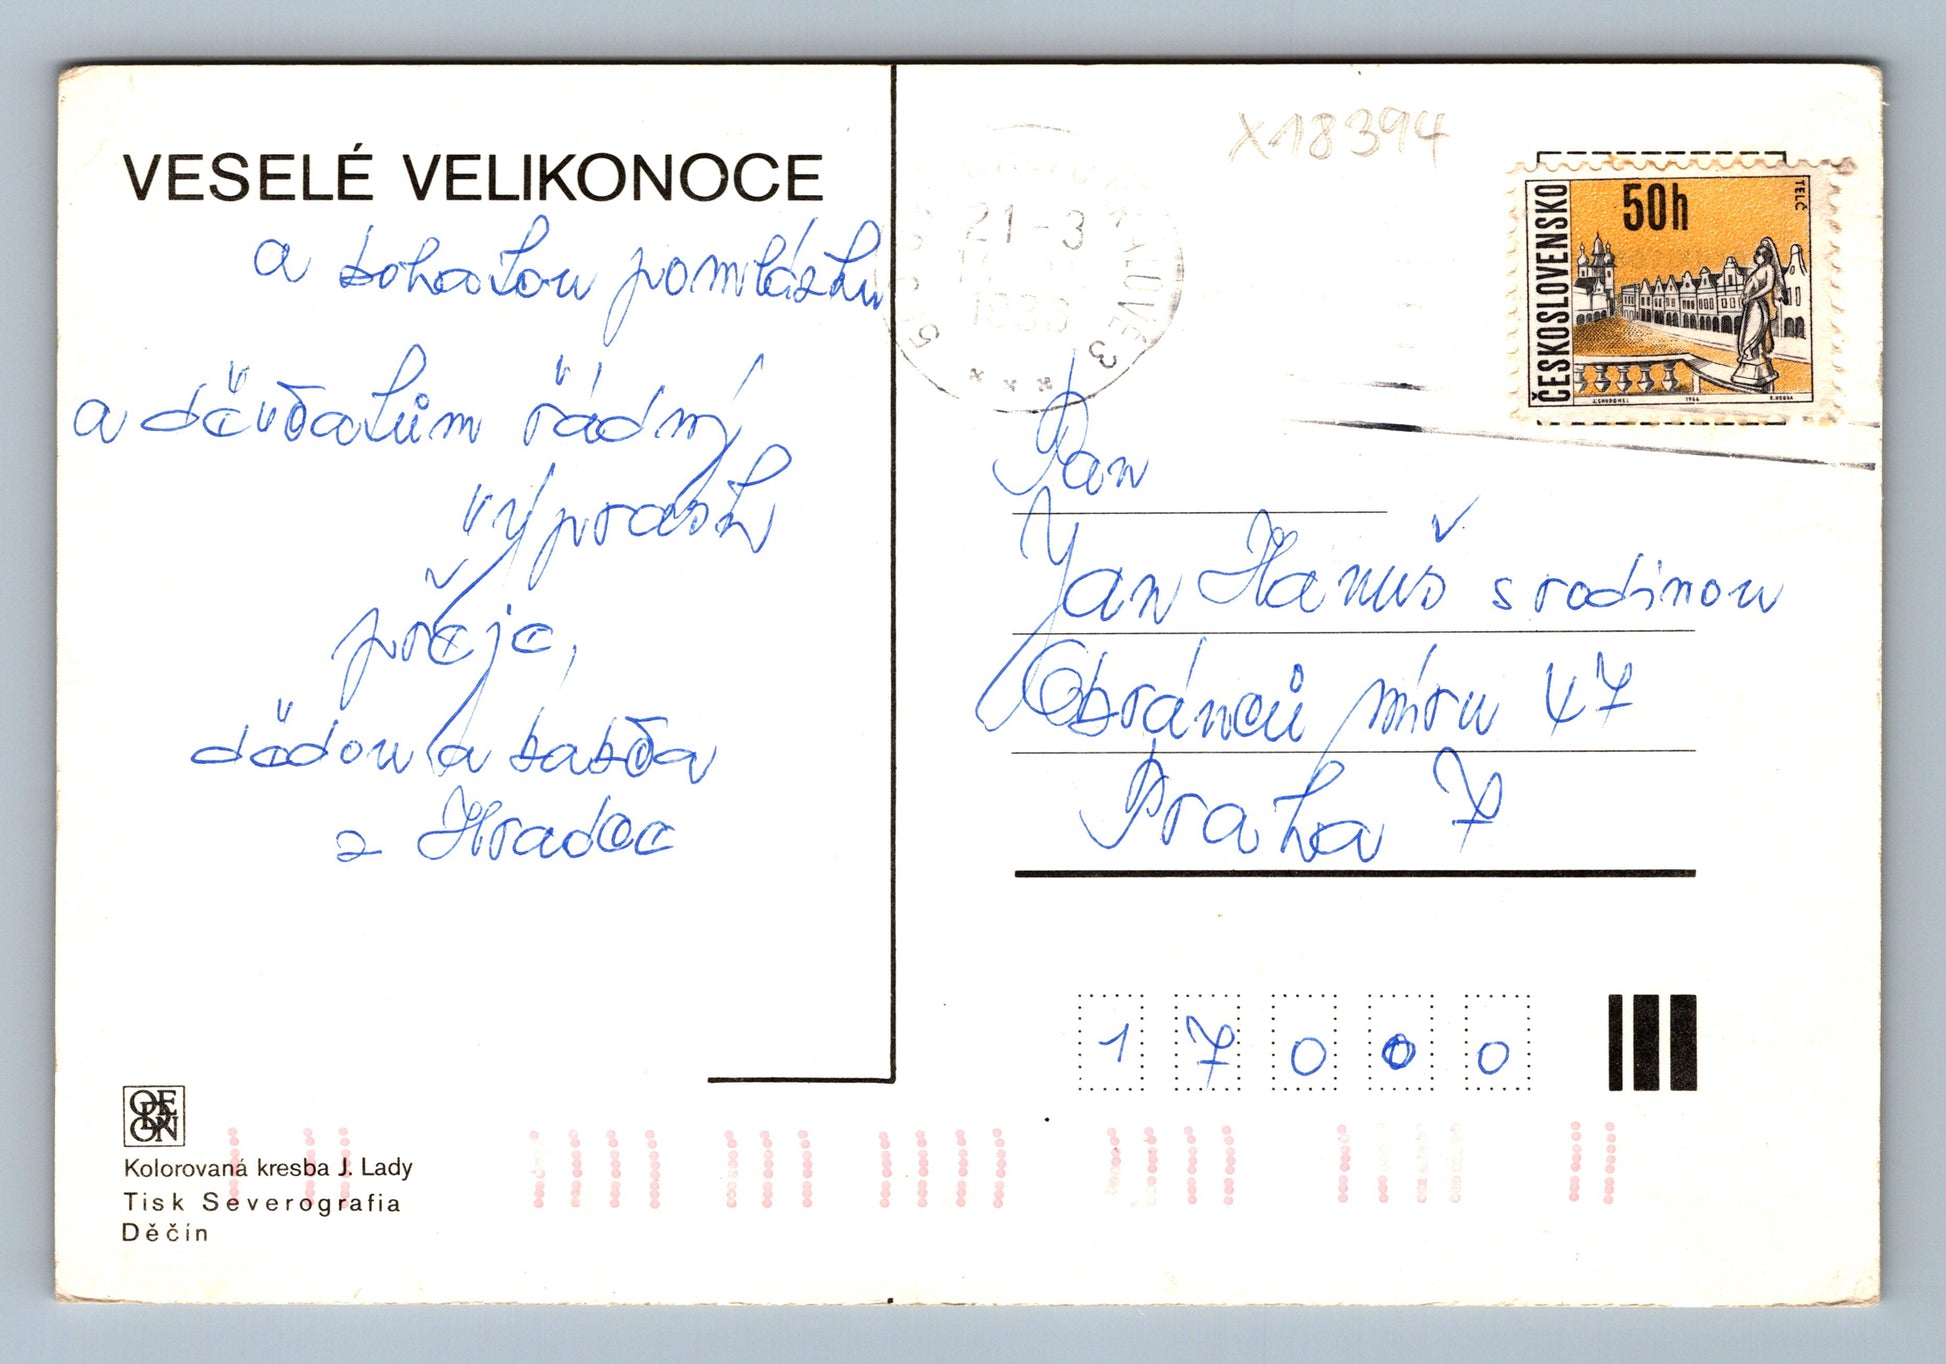 VESELÉ VELIKONOCE
a bohatou pomlázku
a děvčatům řádný
výprask
přeje,
dědou a babča
z Hradce
ODEON
Kolorovaná kresba J. Lady
Tisk Severografia
Děčín
X18394
21-3
3
ČESKOSLOVENSKO
50h
TELČ
1966
Pan
Jan Hanuš s rodinou
Obránců míru 47
Praha 7
1 7 0 0 0